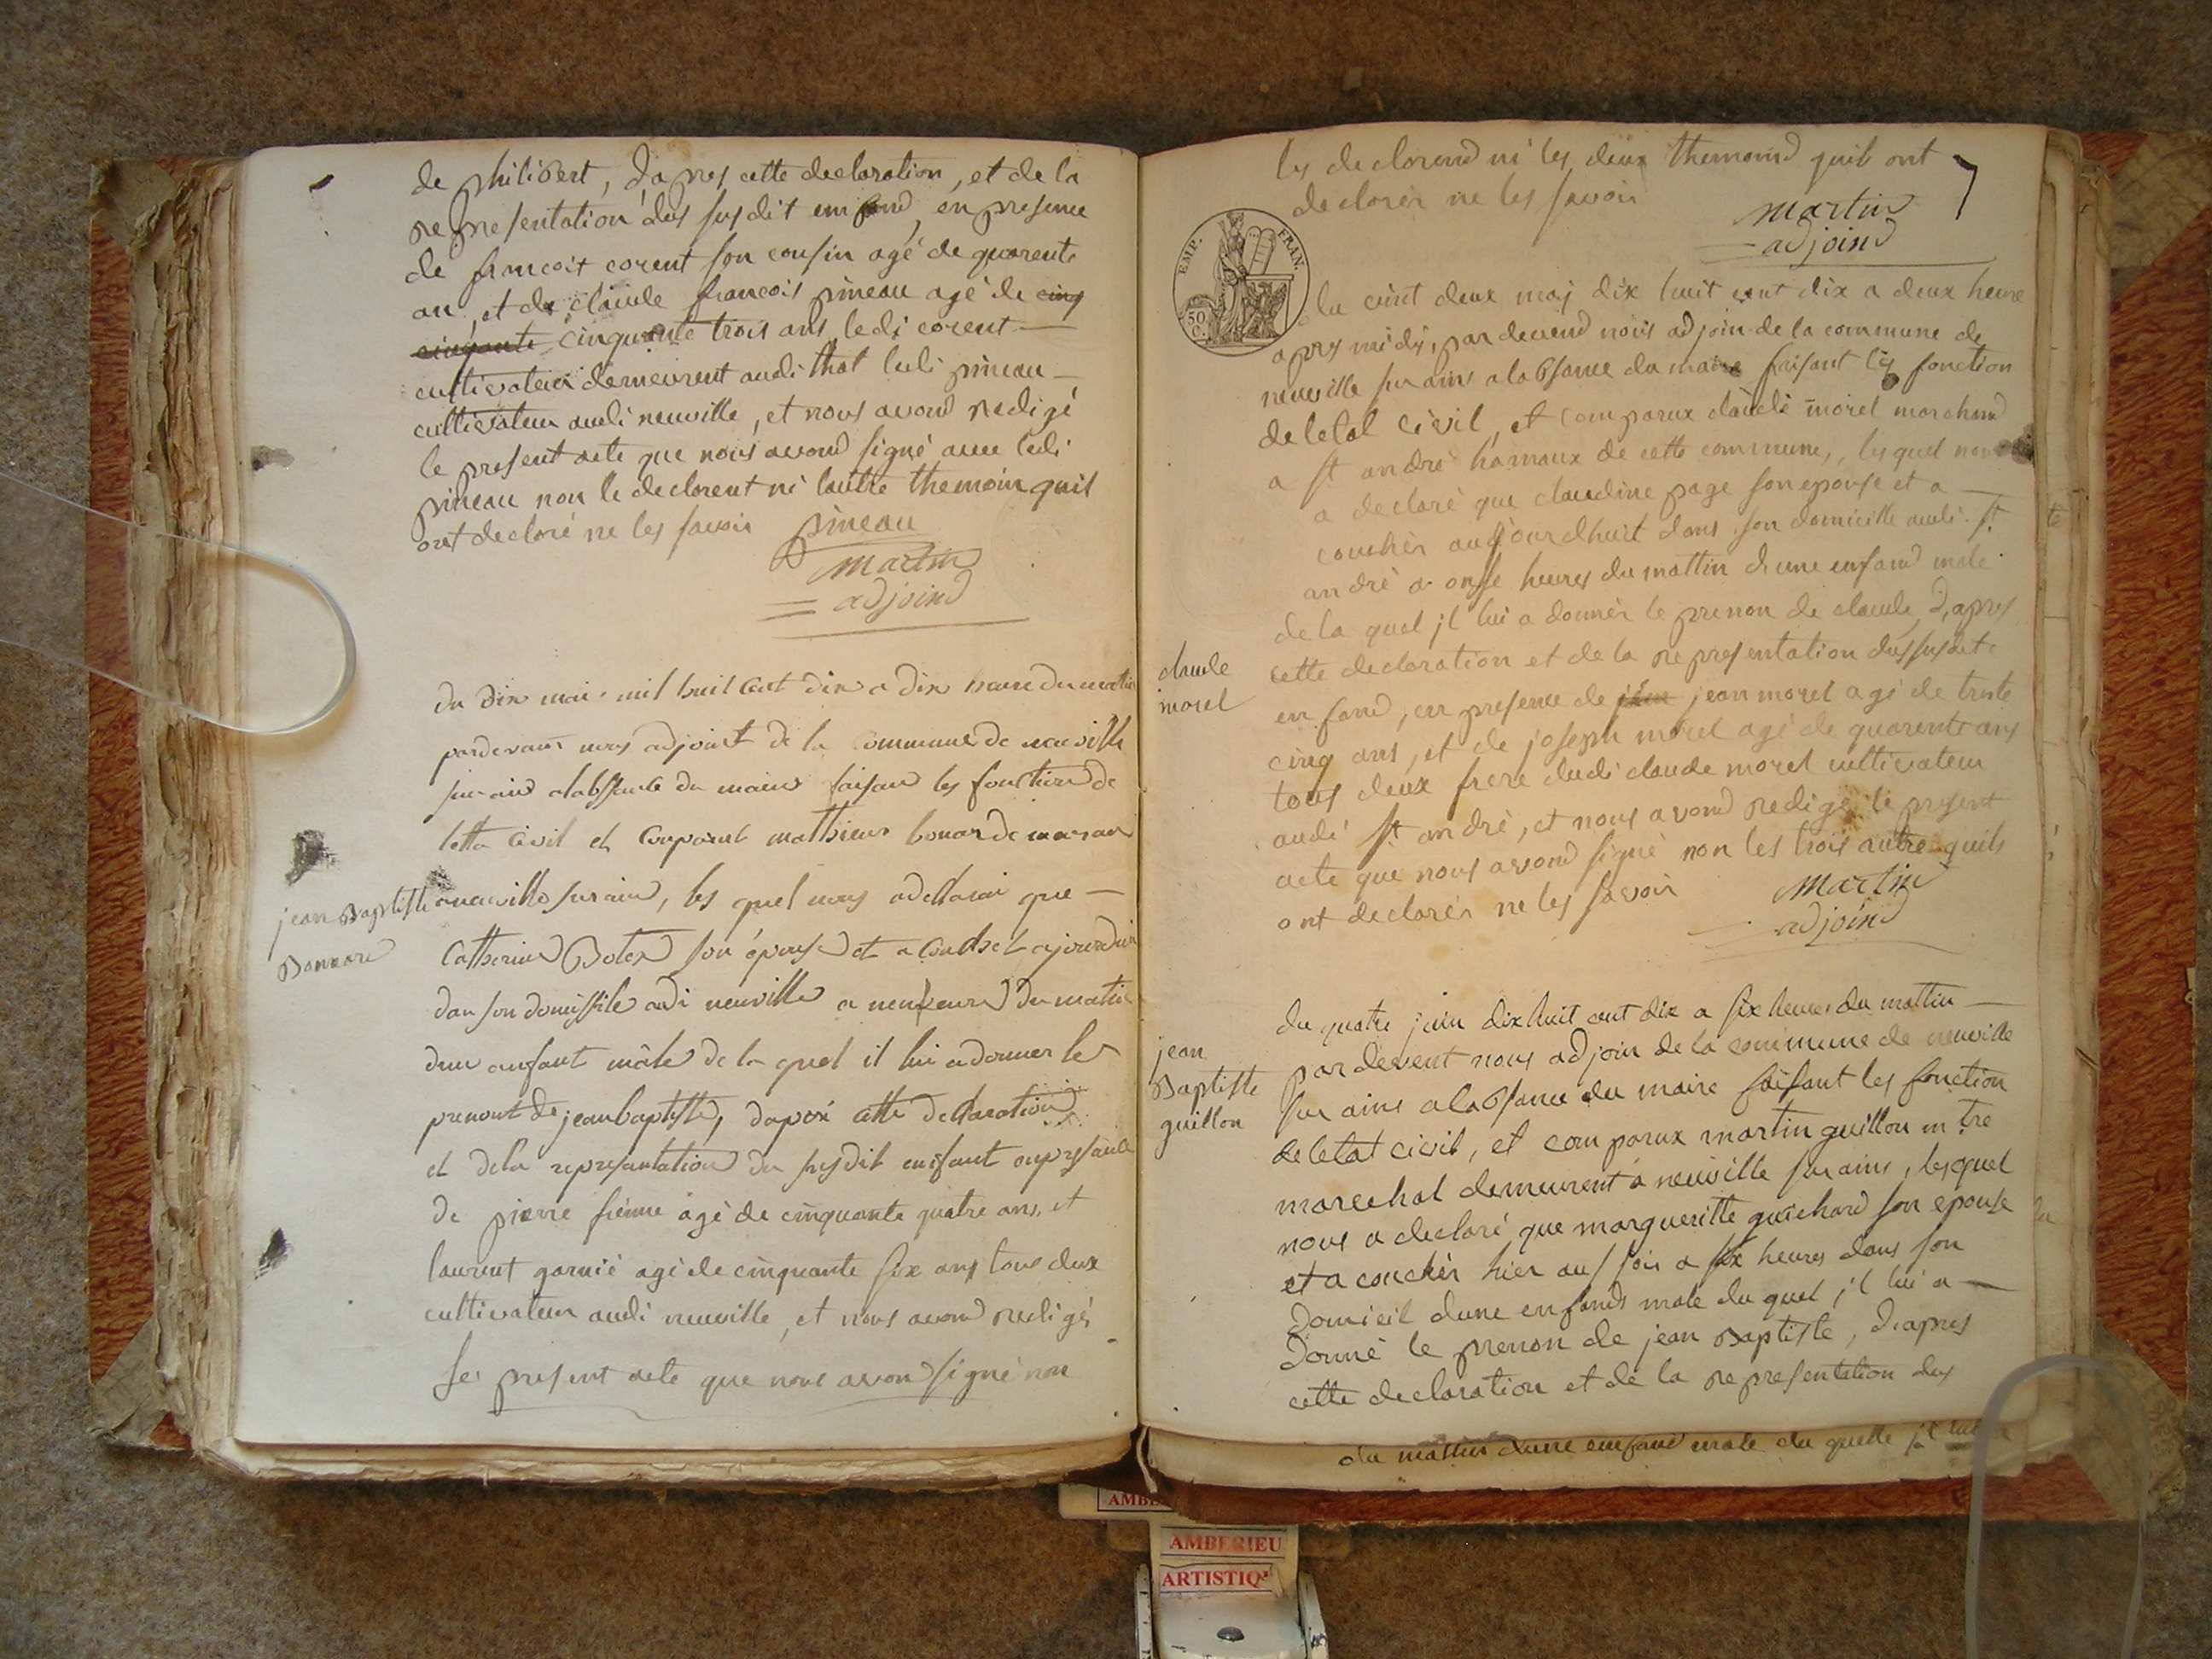 de philibert, d'apres cette declaration, et de la
representation dus susdit emfend, en presence
de francoit corent son cousin agé de quarente
an, et de claude francois pineau agé de cinq
cinqante cinquante trois ans, ledi corent
cultivateur demeurent audi thol ledi pineau
cultivateur audi neuville, et nous avond redigé
le present acte que nous avond signé avec ledi
pineau non le declorent ni lautre themoin quil
ont decloré ne les savoir pineau
martin
adjoind
du dix mai mil huit cent dix a dix heure du matin
pardevant nous adjoint de la commune de neuville
sur ain a labsence du maire faisan les fonction de
letta civil et comparut mathieu bonar
jean Baptiste
Bonnare
a neuville sur ain, les quel nous a declarai que
Catherine son épouse et a couchet
dan son domissile audi neuville a neuf eure du matin
dun anfant mâle de la quel il lui a donner le
prenont de jean baptiste, dapré cette declaration
et de la represantation du susdit enfant en presance
de pierre agé de cinquante quatre ans, et
laurent garnié agé de cinquante six ans tous deux
cultivateur audi neuville, et nous avond redigé,
le present acte que nous avon signé non
les declorend ni les deux themoind quib ont
declorér ne les savoir
7
martin
adjoind
EMP. FRAN.
50 C.
du vint deux maj dix huit cent dix a deux heure
apres midi, par devend nous adjoin de la commune de
neuville sur ains a labsance du maire faisant les fonction
de letat civil, et comparux claude morel marchand
a st andré hamaux de cette commune, lesquel nous
a declaré que claudine page son epouse et a
couchér aujourdhuit dans son domicille audi st
andré a onsse heures du mattin dune enfand male
de la quel jl lui a donnér le prenon de claude, d'apres
claude
morel
cette decloration et de la representation dus susdit
enfand, en presence de jean jean morel agé de trente
cinq ans, et de joseph morel agé de quarente ans
tous deux frere dudi claude morel cultivateur
audi st andré, et nous avond redigé le present
acte que nous avond signé non les trois autre quils
ont declorér ne les savoir
martin
adjoind
du quatre juin dix huit cent dix a six heures du mattin
jean
Baptiste
guillon
par devent nous adjoin de la commune de neuville
sur ains a labsance du maire faisant les fonction
de letat civil, et comparux martin guillon mtre
marechal demeurent a neuville sur ains, lesquel
nous a declaré que margueritte guichard son epouse
et a couchér hier au soir a six heures dans son
domicil dune enfands male du quel jl lui a
donné le prenon de jean Baptiste, d'apres
cette decloration et de la representation dus
du mattin dune emfand male du quelle jl lui a
AMBERIEU
ARTISTIQ